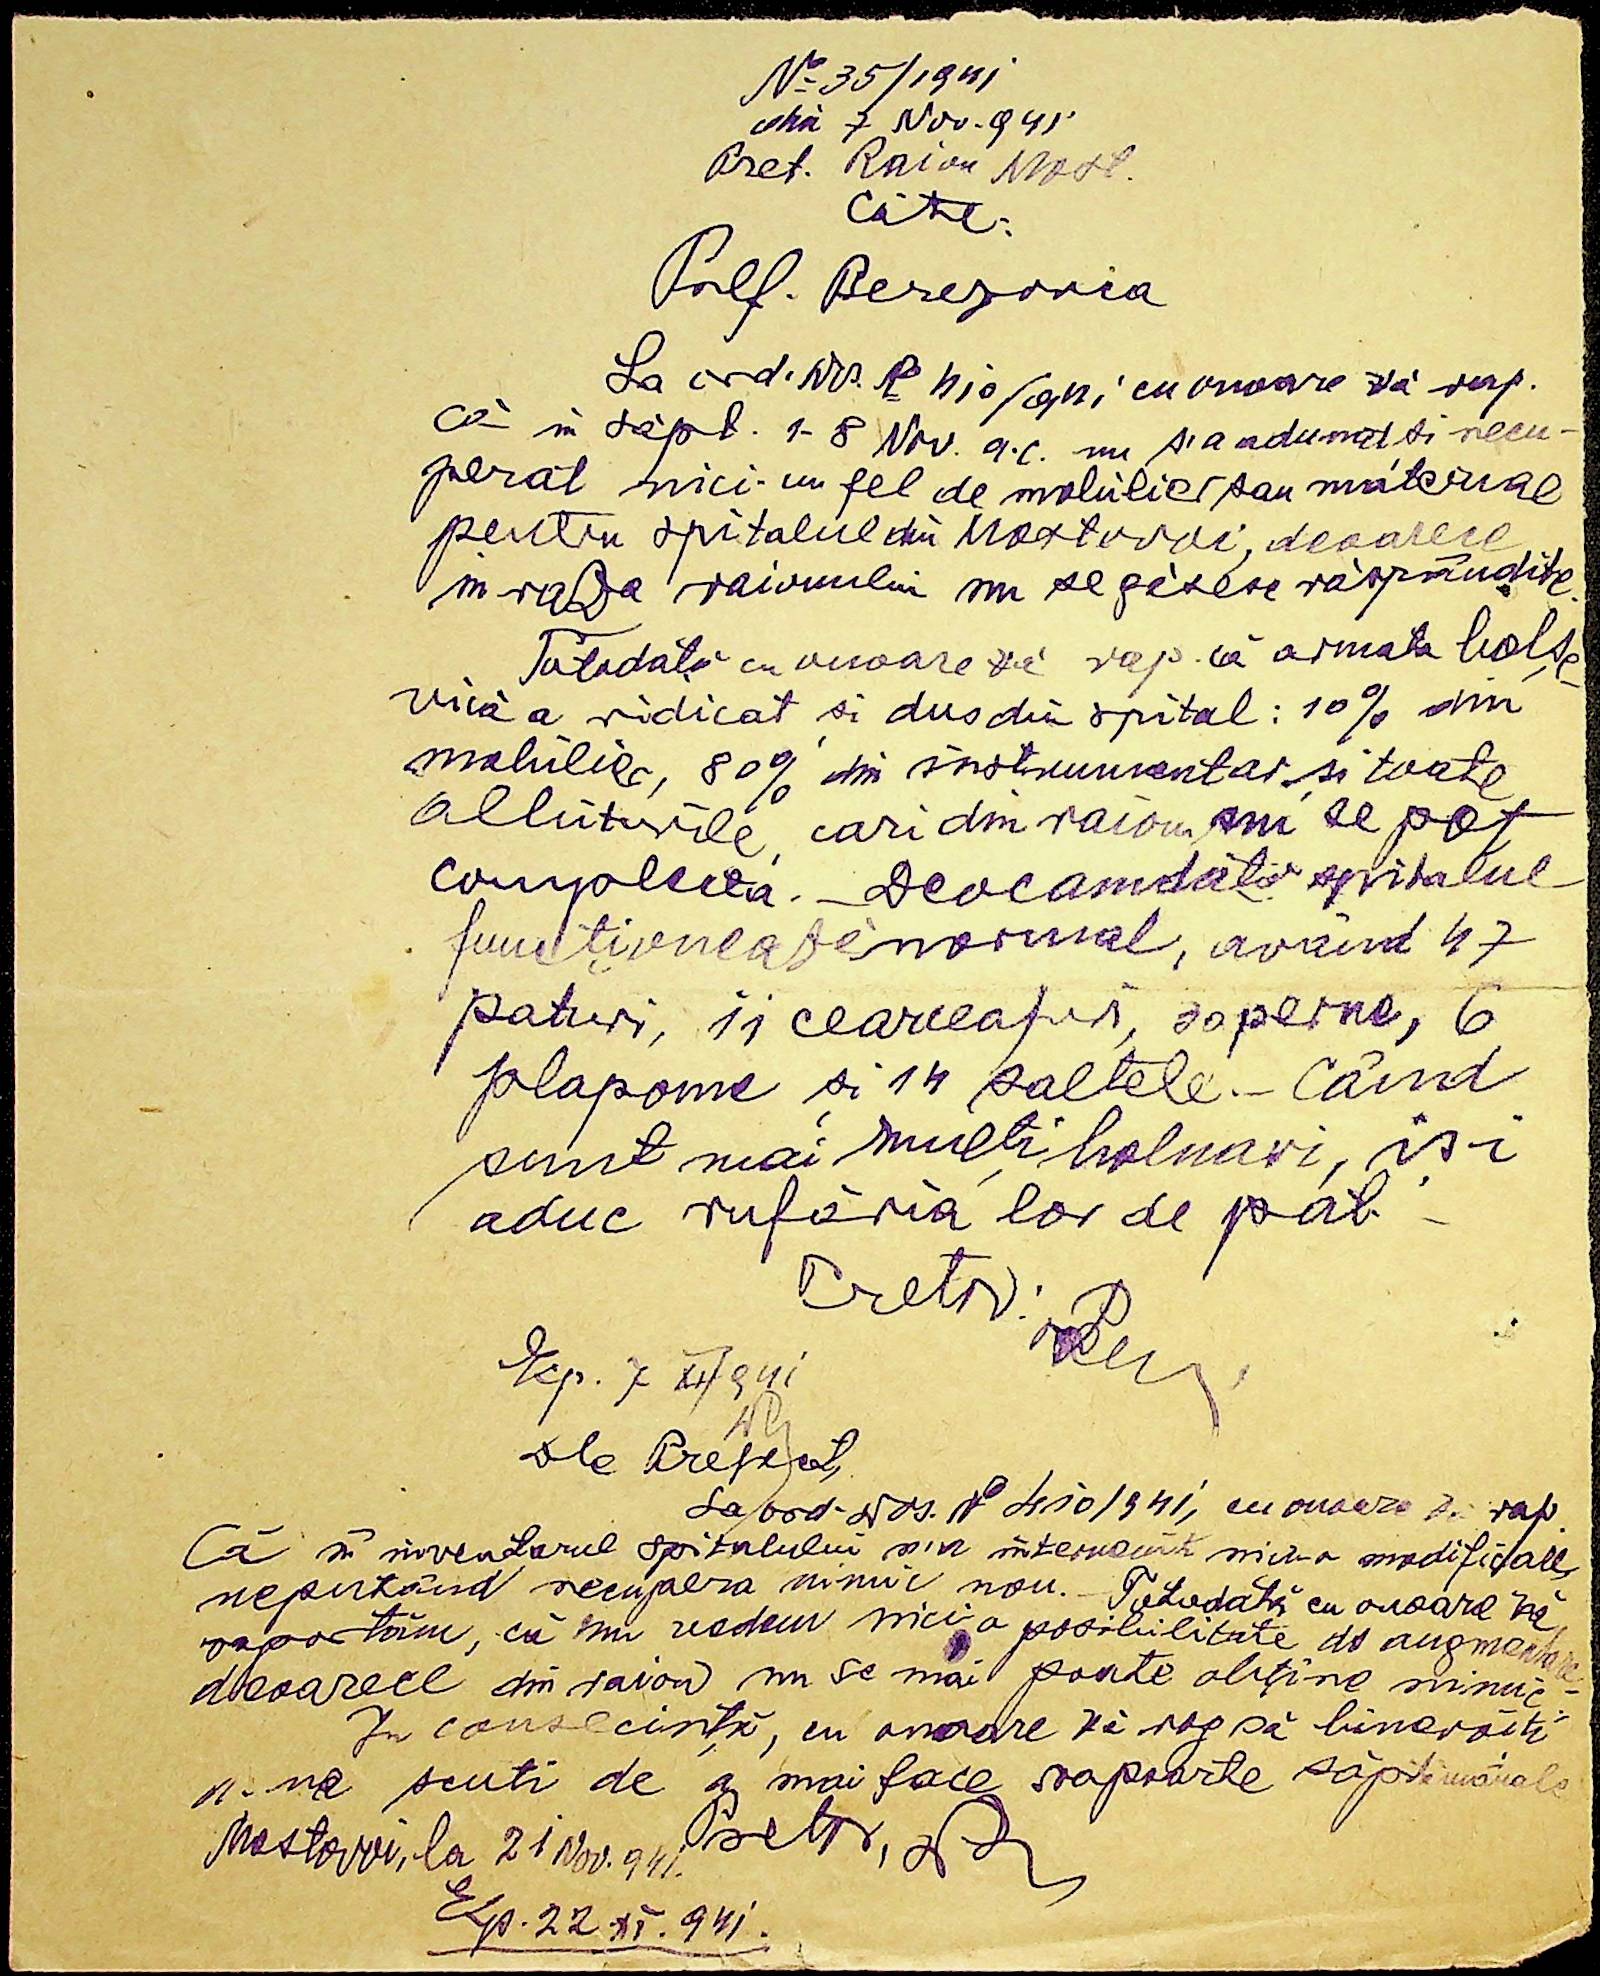 No 35/1941
din 7 Nov. 941
Pret. Raion Most.
Către:
Pref. Berezovca
La ord. Dvs. No 410/941 cu onoare vă rap.
că în săpt. 1-8 Nov. a.c. nu s'a adunat și recu-
perat nici-un fel de mobilier sau material
pentru spitalul din Mostovoi, deoarece
în raza raionului nu se găsesc răspândite.
Totodată cu onoare vă rap. că armata bolșe-
vică a ridicat și dus din spital: 10% din
mobilier, 80% din instrumentar și toate
albiturile, cari din raion nu se pot
completa. – Deocamdată spitalul
funcționează normal, având 47
paturi, 11 cearceafuri, perne, 6
plapome și 14 saltele. – Când
sunt mai mulți bolnavi, iși
aduc rufăria lor de pat. –
Pretor:
Exp. 7 XI/941
Dle Prefect,
La ord. Dvs. No 410/941, cu onoare vă rap.
Că în inventarul spitalului n'a intervenit nici-o modificare,
neputând recupera nimic nou. – Totodată cu onoare vă
raportăm, că nu vedem nici o posibilitate de augmentare
deoarece din raion nu se mai poate obține nimic. –
In consecință, cu onoare vă rog să binevoiți
a-ne scuti de a mai face rapoarte săptămânale
Mostovoi, la 21 Nov. 941. Pretor,
Exp. 22 XI. 941.